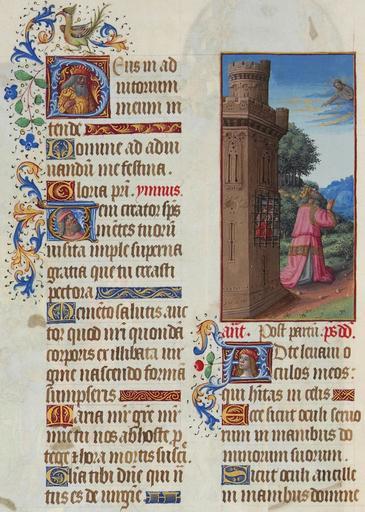 Deus in ad
iutorium
meum in
tende
Domine ad adiu
uandum me festina.
Gloria pri. ymnus.
Veni creator sps
mētes tuorū
uisita imple superna
gratia que tu creasti
pectora
Memēto salutis auc
tor quod nrī quondā
corporis ex illibata uir
gine nascendo formā
sumpseris
Maria mr̄ grē mr̄
mie tu nos ab hoste p
tege & hora mortis suscī.
Glīa tibi dn̄e qui n
tus es de uirgīe
ant. Post partū. ps dd.
Ad te leuaui o
culos meos:
qui hītas in celis
Ecce sicut oculi seruo
rum in manibus do
minorum suorum.
Sicut oculi ancille
in manibus domine